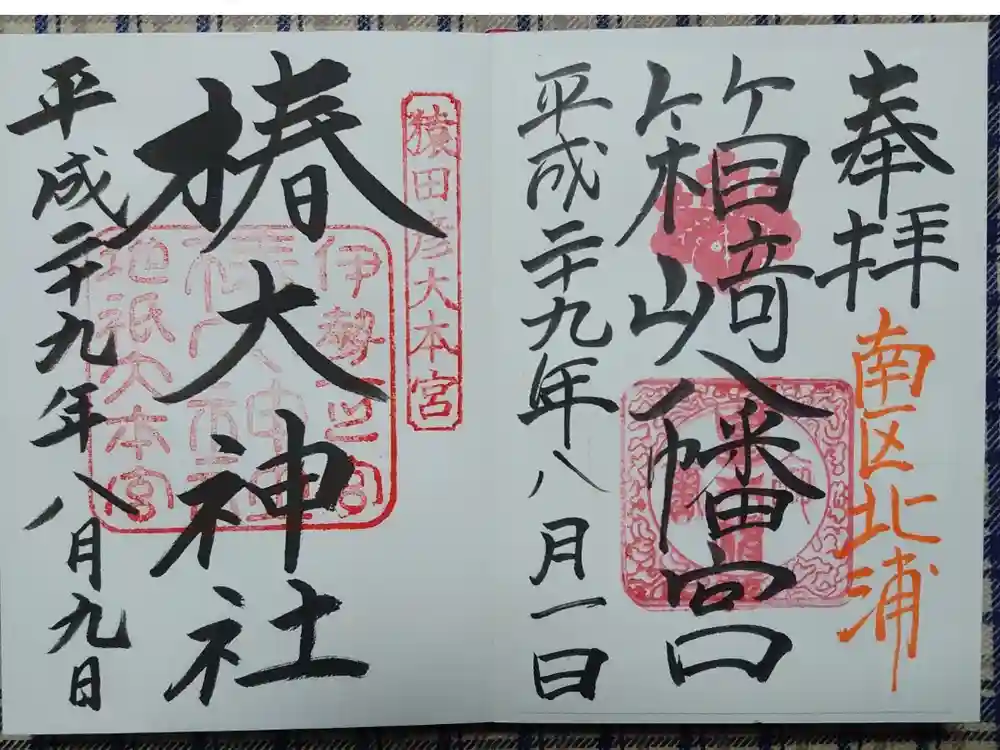 奉拝
南区北浦
箱崎八幡宮
平成二十九年八月一日
猿田彦大本宮
伊勢一之宮
地祇大本宮
椿大神社
平成二十九年八月九日